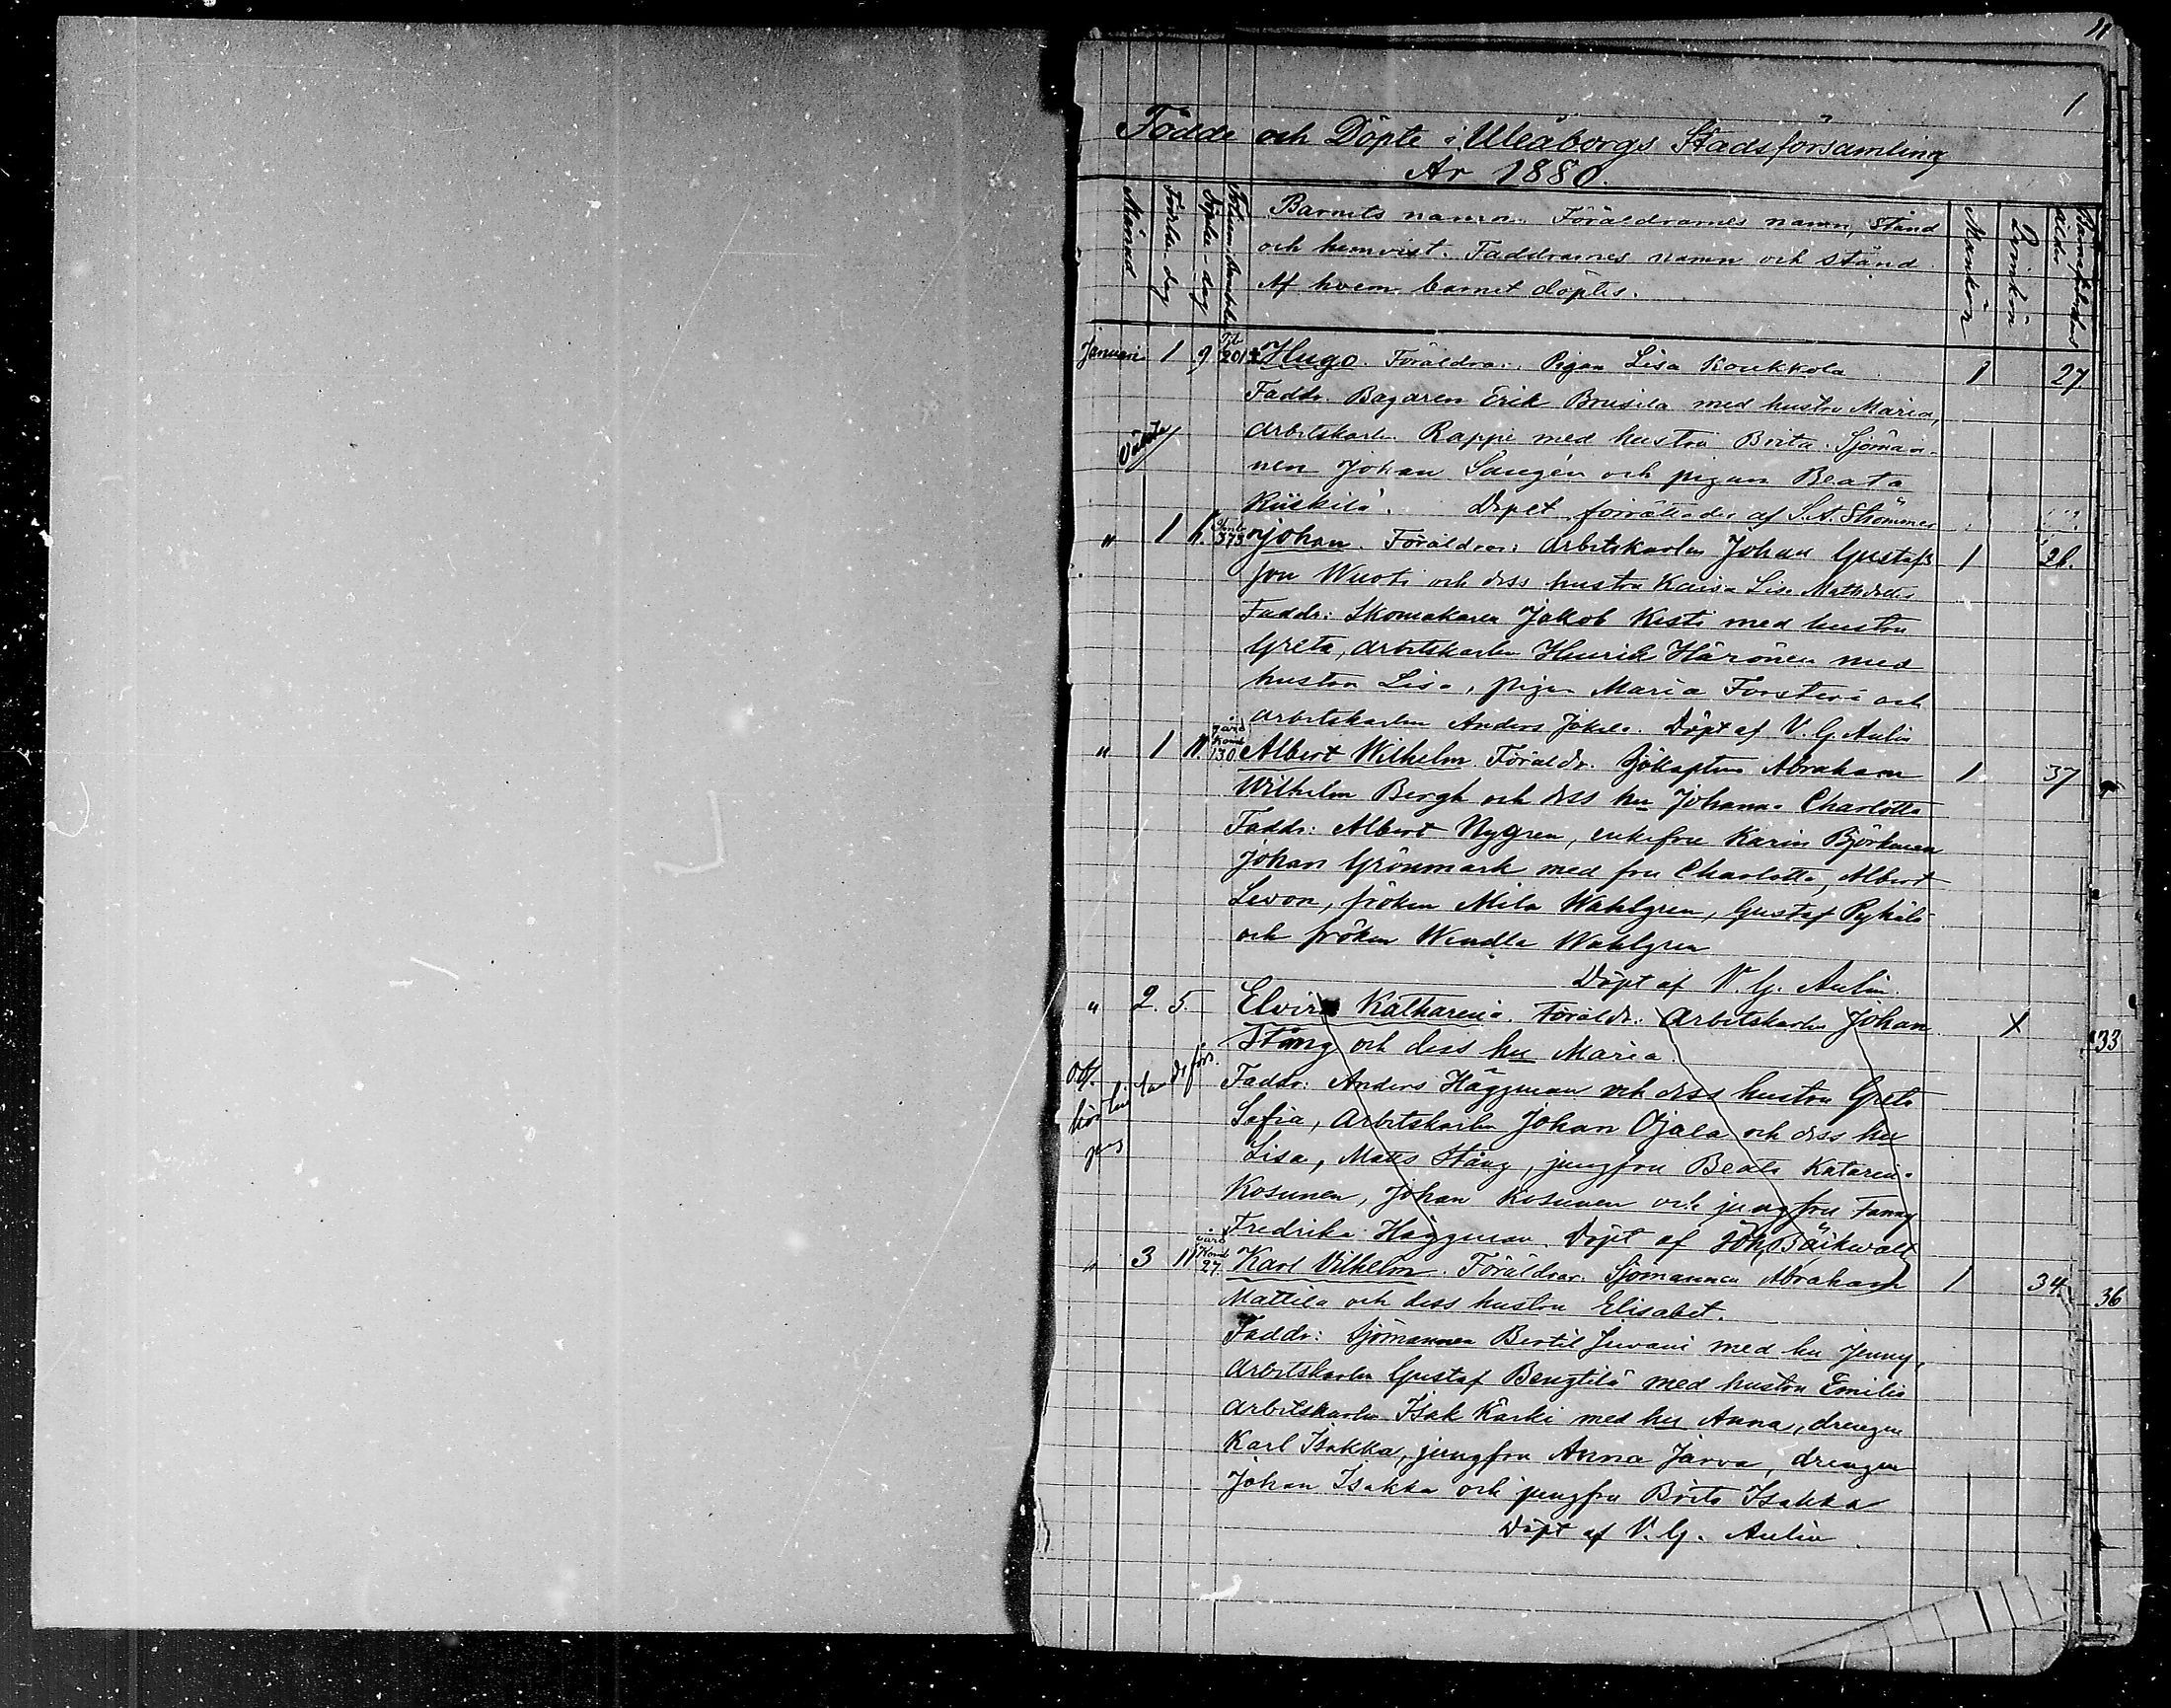 1
Födde och Döpte i Uleåborgs Stadsförsamling
År 1880.
Månad
Födelse-dag
Döpelse-dag
Barnets namn. Föräldrarnes namn, stånd
och hemvist. Faddrarnes namn och stånd
Af hvem barnet döptes.
Mankön
Qvinkön
Barnaföderskas ålder
Januari 1 9 201 Hugo. Föräldrar: Pigan Lisa Koukkola 1 27
Faddr. Bagaren Erik Brusila med hustru Maria,
Oäkta
arbetskarln Rappi med hustru Brita. Sjöman-
nen Johan Sangén och pigan Beata
Küskilä. Dopet förrättades af S.A. Strömmer
" 1 373 Johan. Föräldrar: Arbetskarln Johan Gustafs 1 28.
son Wuoti och dess hustru Kaisa Lisa Mattsdotter
Faddr: Skomakaren Jakob Kesti med hustru
Greta, arbetskarln Henrik Härönen med
hustru Lisa, pigan Maria Forsteri och
arbetskarlen Anders Jokela. Döpt af V. G. Aulin
" 1 11. 130 Albert Wilhelm. Föräldr. Sjökapten Abraham 1 37
Wilhelm Bergh och dess hu Johanna Charlotta
Faddr: Albert Nygren, enkefru Karin Björkman
Johan Grönmark med fru Charlotta, Albert
Levon, fröken Mila Wahlgren, Gustaf Pyhälä
och fröken Wendla Wahlgren
Döpt af V. G. Aulin.
" 2. 5. Elvira Katharina. Föräldr: Arbetskarln Johan X 33
Stång och dess hu Maria.
Faddr: Anders Häggman och dess hustru Greta
Sofia, Arbetskarln Johan Ojala och dess hu
Lisa, Matts Stång, jungfru Beata Katarina
Kosunen, Johan Kosunen och jungfru Fanny
Fredrika Häggman. Döpt af Joh. Bäckwall
" 3 11 27 Karl Vilhelm. Föräldrar. Sjömannen Abraham 1 34 36
Mattila och dess hustru Elisabet.
Faddr: Sjömannen Bertil Juvani med hu Jenny,
Arbetskarln Gustaf Bengtilä med hustru Emilia
arbetskarln Isak Karki med hu Anna, drengen
Karl Isakka, jungfru Anna Järva, drengen
Johan Isakka och jungfru Brita Isakka
Döpt af V. G. Aulin